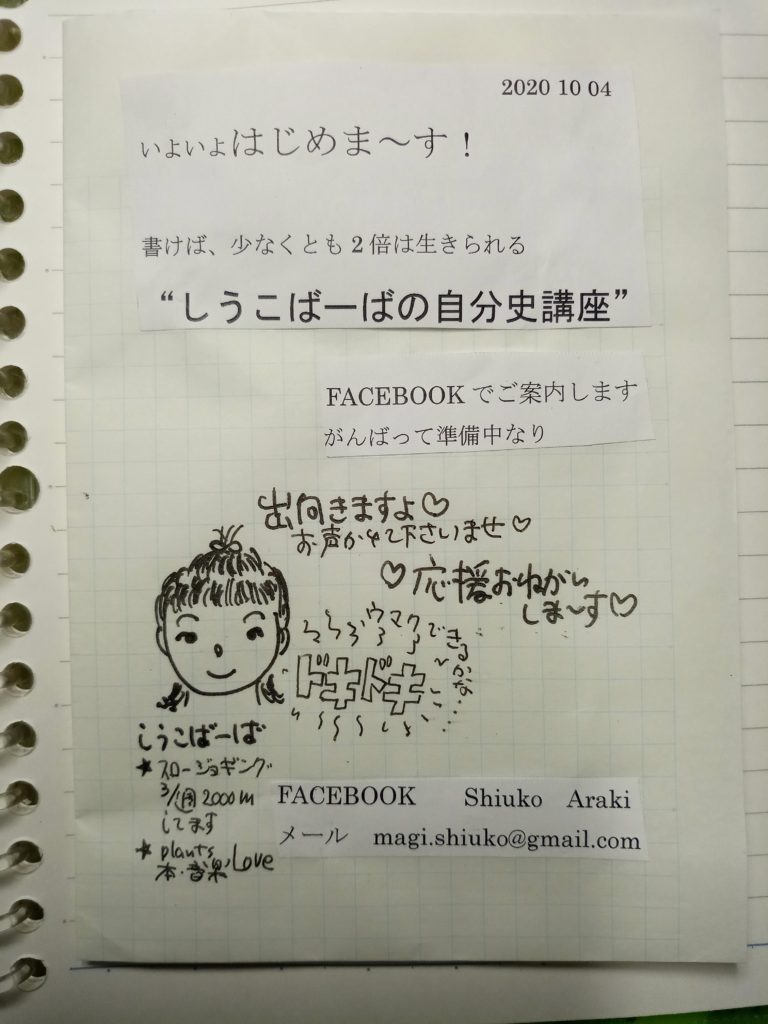 2020 10 04
いよいよはじめま～す！
書けば、少なくとも２倍は生きられる
“しうこばーばの自分史講座”
FACEBOOK でご案内します
がんばって準備中なり
出向きますよ♡
お声かけて下さいませ♡
♡応援おねがい
しま〜す♡
ウマクできるかな…
ドキドキ
しうこばーば
★スロージョギング
3/週 2000m
してます
★plants
本・音楽 Love
FACEBOOK Shiuko Araki
メール magi.shiuko@gmail.com